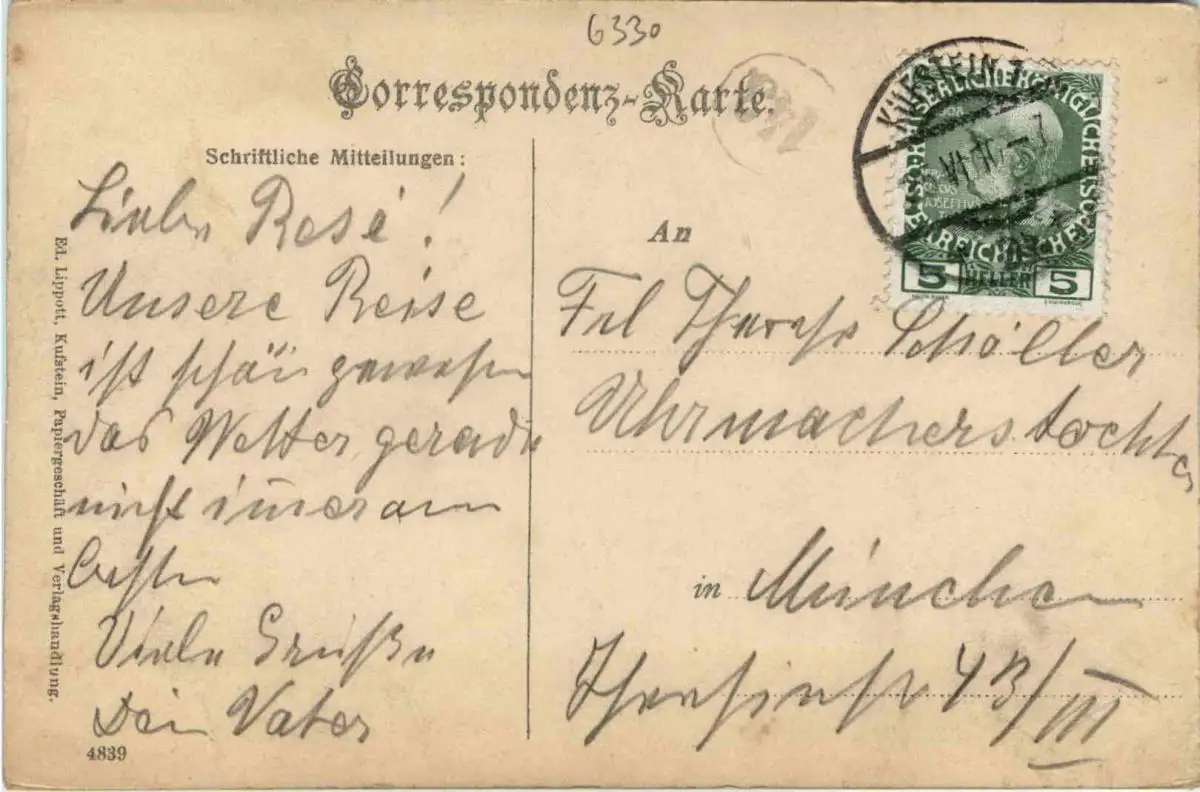 6330
Correspondenz-Karte.
Schriftliche Mitteilungen:
Liebe Rosé!
Unsere Reise
ist schön gewesen
das Wetter gerade
nicht im̅er am
besten
Viele Grüße
Dein Vater
4839
Ed. Lippott, Kufstein, Papiergeschäft und Verlagshandlung.
KUFSTEIN 1
VI 10 - 7
KAISERLICHE KÖNIGLICHE
ÖSTERREICHISCHE POST
FRANCISCUS JOSEPHUS
5 HELLER 5
An
Frl Therese Schöller
Uhrmacherstochter
in München
43/III